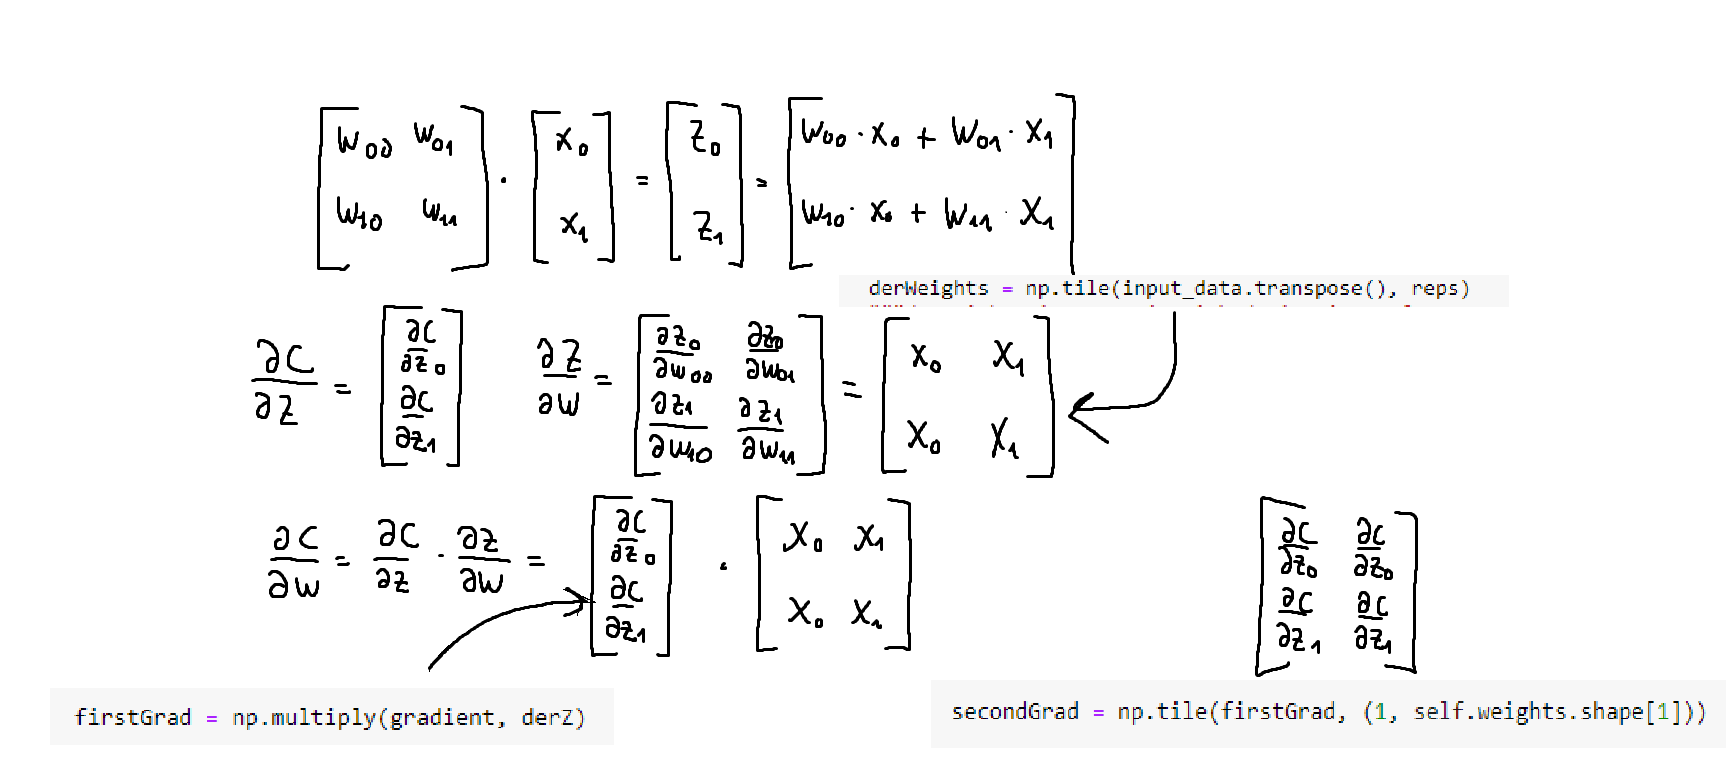 [w₀₀ w₀₁; w₁₀ w₁₁] · [x₀; x₁] = [z₀; z₁] = [w₀₀ · x₀ + w₀₁ · x₁; w₁₀ · x₀ + w₁₁ · x₁]
derWeights = np.tile(input_data.transpose(), reps)
∂C/∂z = [∂C/∂z₀; ∂C/∂z₁]
∂z/∂w = [∂z₀/∂w₀₀ ∂z₀/∂w₀₁; ∂z₁/∂w₁₀ ∂z₁/∂w₁₁] = [x₀ x₁; x₀ x₁]
∂C/∂w = ∂C/∂z · ∂z/∂w = [∂C/∂z₀; ∂C/∂z₁] · [x₀ x₁; x₀ x₁]
[∂C/∂z₀ ∂C/∂z₀; ∂C/∂z₁ ∂C/∂z₁]
firstGrad = np.multiply(gradient, derZ)
secondGrad = np.tile(firstGrad, (1, self.weights.shape[1]))